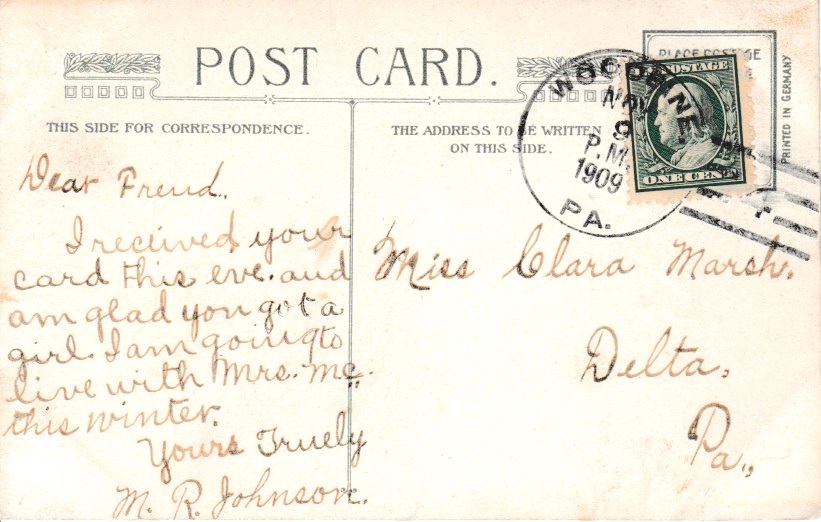 POST CARD.
THIS SIDE FOR CORRESPONDENCE.
THE ADDRESS TO BE WRITTEN
ON THIS SIDE.
PLACE POSTAGE
PRINTED IN GERMANY
POSTAGE
ONE CENT
WOODBINE
NOV
9
P.M.
1909
PA.
4
Dear Freud.
I received your
card this eve. and
am glad you got a
girl. I am going to
live with Mrs. Mc.
this winter.
Yours Truely
M. R. Johnson.
Miss Clara Marsh.
Delta.
Pa.,